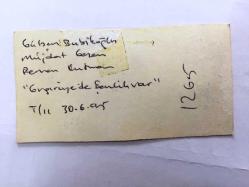 Gülşen Bubikoğlu
Müjdat Gezen
Perran Kutman
"Gırgıriye'de Şenlik var"
T/11 30.6.
1265